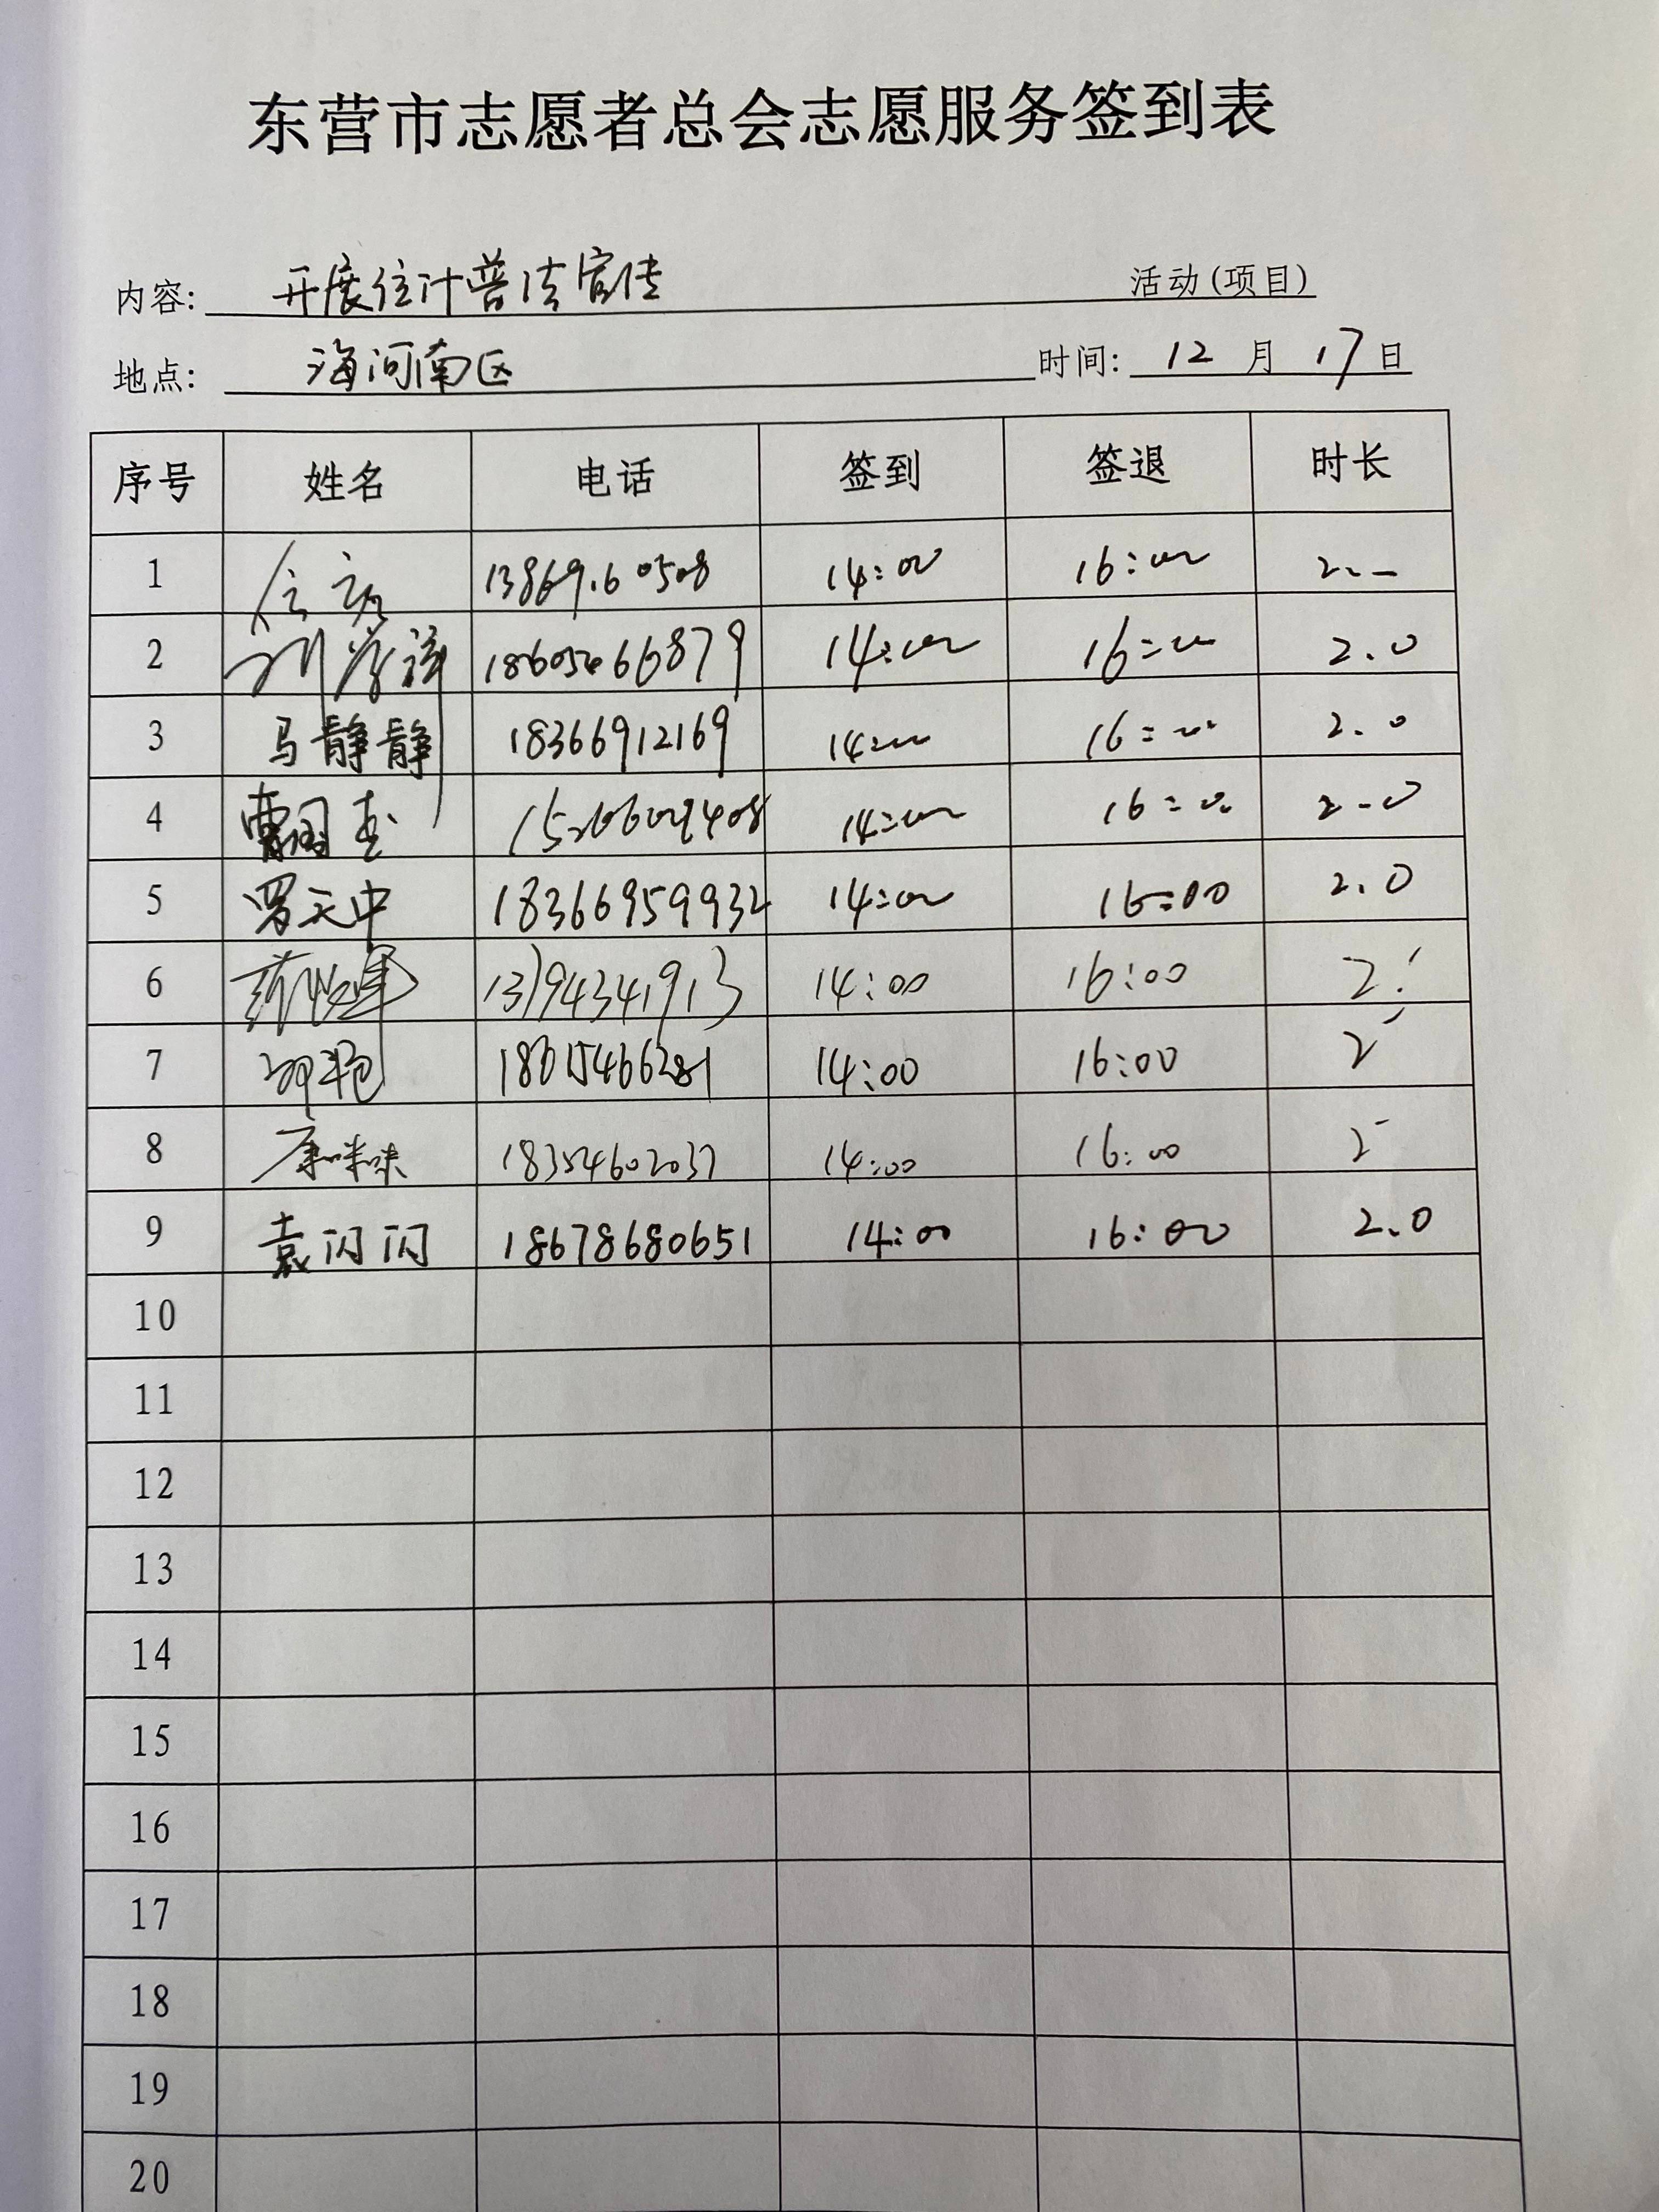 东营市志愿者总会志愿服务签到表
内容: 开展统计普法宣传 活动(项目)
地点: 海河南区 时间: 12 月 17 日
序号 姓名 电话 签到 签退 时长
1 14:00 16:00
2 18605466879 14:00 16:00 2.0
3 马静静 18366912169 14:00 16:00 2.0
4 14:00 16:00 2.0
5 罗天中 18366959932 14:00 16:00 2.0
6 14:00 16:00 2
7 14:00 16:00 2
8 康咪咪 18354602037 14:00 16:00 2
9 袁闪闪 18678680651 14:00 16:00 2.0
10
11
12
13
14
15
16
17
18
19
20